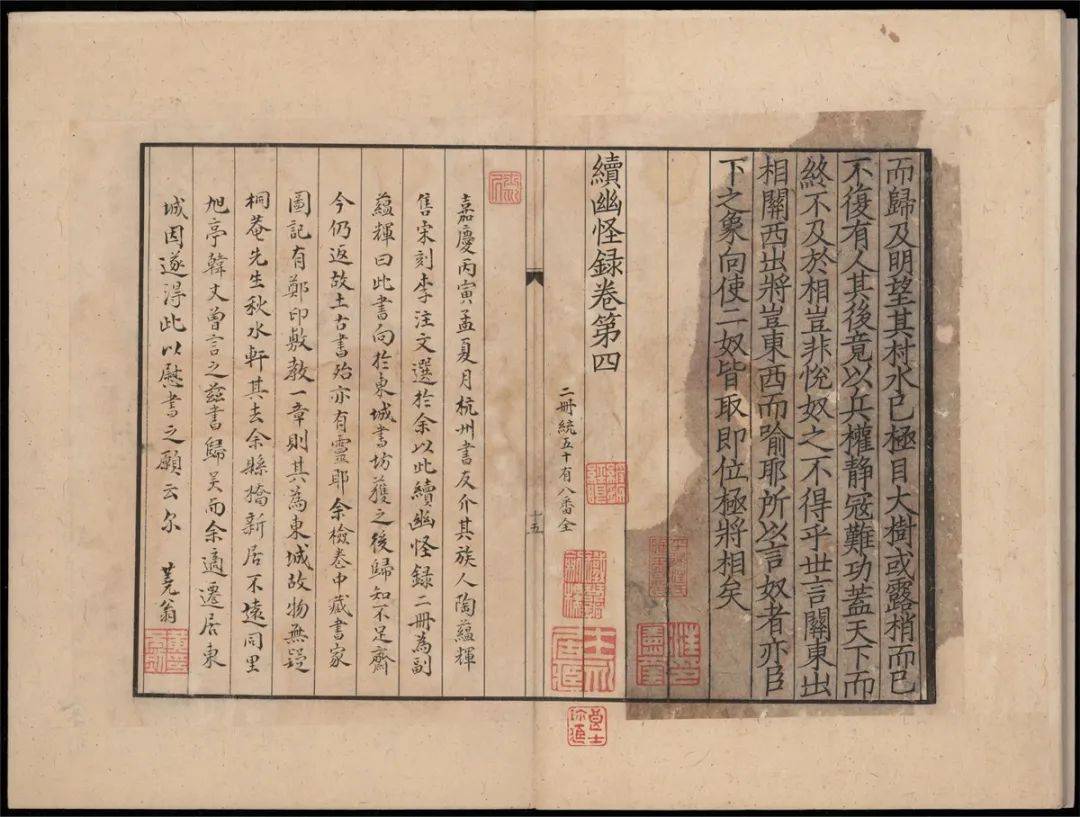 而歸及明望其村水已極目大樹或露梢而已
不復有人其後竟以兵權静寇難功蓋天下而
終不及於相豈非恱奴之不得乎世言關東出
相關西出將豈東西而喻耶所以言奴者亦臣
下之象向使二奴皆取即位極將相矣
續幽怪録卷第四
二冊統五十有八番全
十五
嘉慶丙寅孟夏月杭州書友介其族人陶藴輝
售宋刻李注文選於余以此續幽怪録二冊為副
藴輝曰此書向於東城書坊獲之後歸知不足齋
今仍返故土古書殆亦有靈耶余檢卷中藏書家
圖記有鄭印敷教一章則其為東城故物無疑
桐菴先生秋水軒其去余縣橋新居不遠同里
旭亭韓丈曾言之茲書歸吴而余適遷居東
城因遂得此以慰書之願云尔 蕘翁